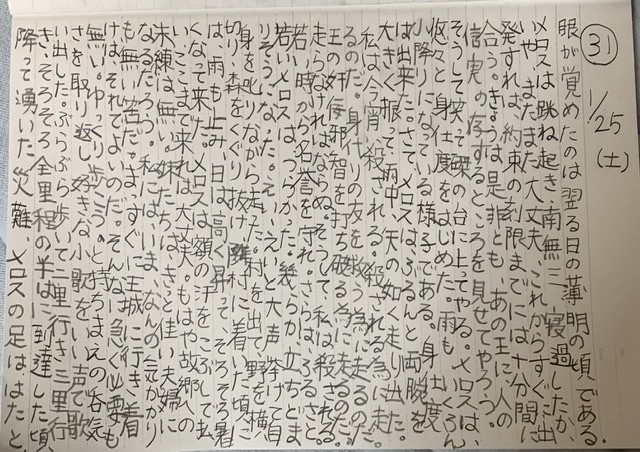 ㉛ 1/25 (土)
眼が覚めたのは翌る日の薄明の頃である。
メロスは跳ね起き、南無三、寝過したか、
いや、まだまだ大丈夫、これからすぐに出
発すれば、約束の刻限までには十分間に
合う。きょうは是非とも、あの王に、人の
信実の存するところを見せてやろう。
そうして笑って磔の台に上ってやる。メロスは、
悠々と身仕度をはじめた。雨も、いくぶん
小降りになっている様子である。身仕度
は出来た。さて、メロスは、ぶるんと両腕を
大きく振って、雨中、矢の如く走り出た。
私は、今宵、殺される。殺される為に走
るのだ。身代りの友を救う為に走るのだ。
王の奸佞邪智を打ち破る為に走るのだ。
走らなければならぬ。そうして、私は殺される。
若い時から名誉を守れ。さらば、ふるさと。
若いメロスは、つらかった。幾度か、立ちどま
りそうになった。えい、えいと大声挙げて自
身を叱りながら走った。村を出て、野を横
切り、森をくぐり抜け、隣村に着いた頃に
は、雨も止み、日は高く昇って、そろそろ暑
くなって来た。メロスは額の汗をこぶしで払
い、ここまで来れば大丈夫、もはや故郷への
未練は無い。妹たちは、きっと佳い夫婦に
なるだろう。私には、いま、なんの気がかり
も無い筈だ。まっすぐに王城に行き着
けば、それでよいのだ。そんなに急ぐ必要も
無い。ゆっくり歩こう、と持ちまえの呑気
さを取り返し、好きな小歌をいい声で歌
い出した。ぶらぶら歩いて二里行き三里行
き、そろそろ全里程の半ばに到達した頃、
降って湧いた災難、メロスの足は、はたと、